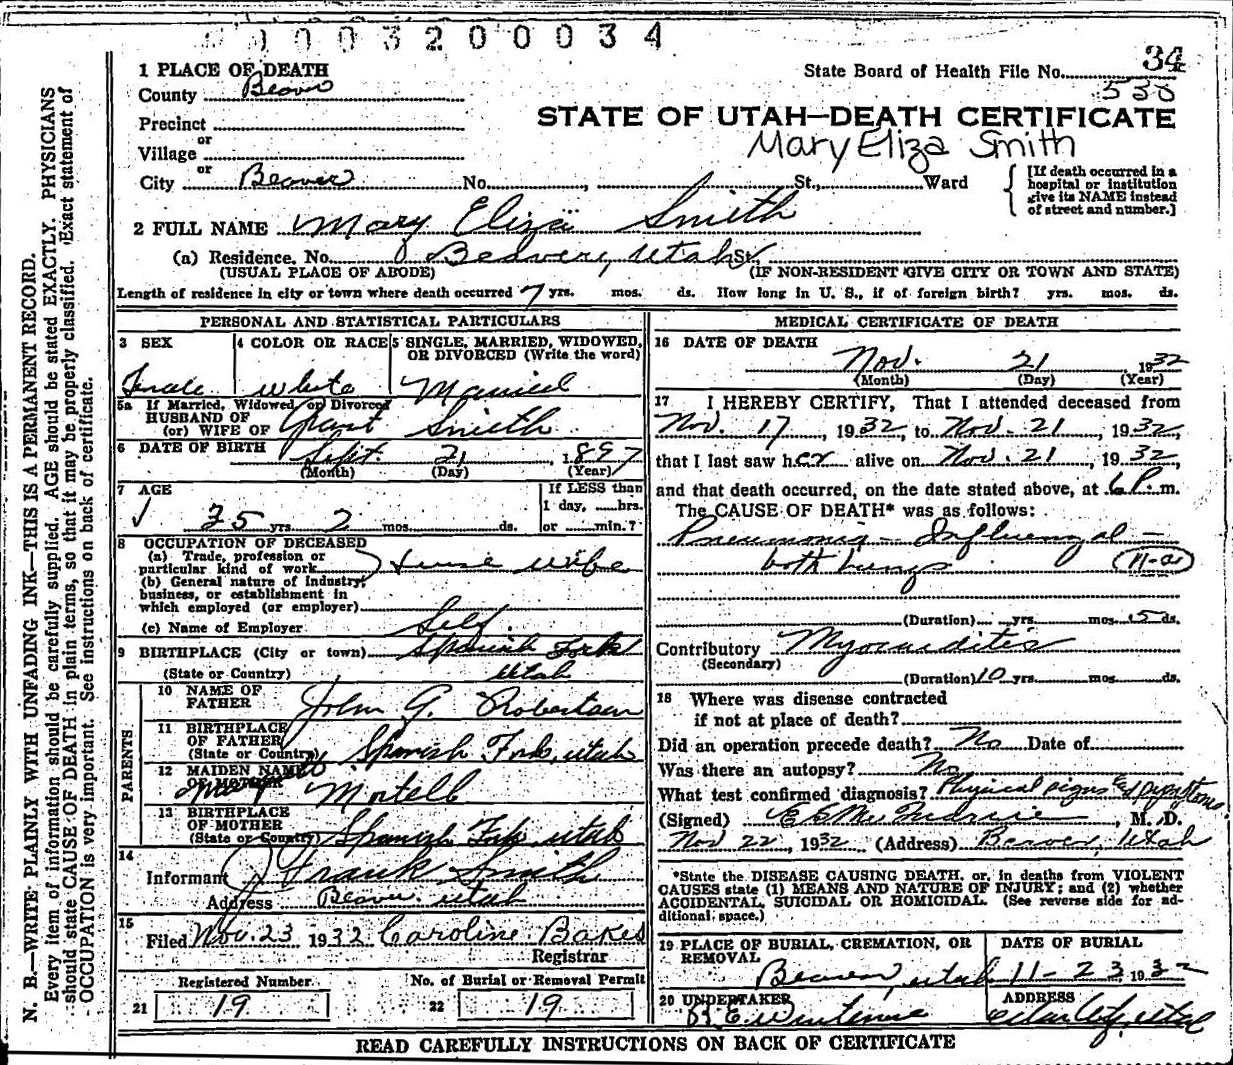 0003200034
34
1 PLACE OF DEATH
State Board of Health File No.
County Beaver
530
Precinct
STATE OF UTAH—DEATH CERTIFICATE
or
Village
Mary Eliza Smith
or
City Beaver No. St., Ward
[If death occurred in a hospital or institution give its NAME instead of street and number.]
2 FULL NAME Mary Eliza Smith
(a) Residence. No. Beaver, Utah St.
(USUAL PLACE OF ABODE) (IF NON-RESIDENT GIVE CITY OR TOWN AND STATE)
Length of residence in city or town where death occurred 7 yrs. mos. ds. How long in U. S., if of foreign birth? yrs. mos. ds.
PERSONAL AND STATISTICAL PARTICULARS
3 SEX
Female
4 COLOR OR RACE
white
5 SINGLE, MARRIED, WIDOWED, OR DIVORCED (Write the word)
Married
5a If Married, Widowed or Divorced
HUSBAND OF
(or) WIFE OF Grant Smith
6 DATE OF BIRTH Sept. 21, 1897
(Month) (Day) (Year)
7 AGE
35 yrs. 2 mos. ds.
If LESS than
1 day, hrs.
or min.?
8 OCCUPATION OF DECEASED
(a) Trade, profession or
particular kind of work House wife
(b) General nature of industry,
business, or establishment in
which employed (or employer)
(c) Name of Employer Self
9 BIRTHPLACE (City or town) Spanish Fork
(State or Country) Utah
PARENTS
10 NAME OF
FATHER John G. Robertson
11 BIRTHPLACE
OF FATHER
(State or Country) Spanish Fork, Utah
12 MAIDEN NAME
OF MOTHER Mortell
13 BIRTHPLACE
OF MOTHER
(State or Country) Spanish Fork, Utah
14
Informant Frank Smith
Address Beaver, Utah
15
Filed Nov. 23 1932 Caroline Bakes
Registrar
Registered Number
21 19
No. of Burial or Removal Permit
22 19
MEDICAL CERTIFICATE OF DEATH
16 DATE OF DEATH
Nov. 21 1932
(Month) (Day) (Year)
17 I HEREBY CERTIFY, That I attended deceased from
Nov. 17, 1932, to Nov. 21, 1932,
that I last saw her alive on Nov. 21, 1932,
and that death occurred, on the date stated above, at 6 P. m.
The CAUSE OF DEATH* was as follows:
Pneumonia - Influenzal -
both lungs 11-a
(Duration) yrs. mos. 5 ds.
Contributory Myocarditis
(Secondary)
(Duration) 10 yrs. mos. ds.
18 Where was disease contracted
if not at place of death?
Did an operation precede death? No Date of
Was there an autopsy? No
What test confirmed diagnosis? Physical signs & symptoms
(Signed) , M. D.
Nov 22, 1932 (Address) Beaver, Utah
*State the DISEASE CAUSING DEATH, or, in deaths from VIOLENT
CAUSES state (1) MEANS AND NATURE OF INJURY; and (2) whether
ACCIDENTAL, SUICIDAL OR HOMICIDAL. (See reverse side for ad-
ditional space.)
19 PLACE OF BURIAL, CREMATION, OR
REMOVAL
Beaver, Utah
DATE OF BURIAL
11-23 1932
20 UNDERTAKER
ADDRESS
Utah
READ CAREFULLY INSTRUCTIONS ON BACK OF CERTIFICATE
N. B.—WRITE PLAINLY WITH UNFADING INK—THIS IS A PERMANENT RECORD.
Every item of information should be carefully supplied. AGE should be stated EXACTLY. PHYSICIANS
should state CAUSE OF DEATH in plain terms, so that it may be properly classified. Exact statement of
OCCUPATION is very important. See instructions on back of certificate.